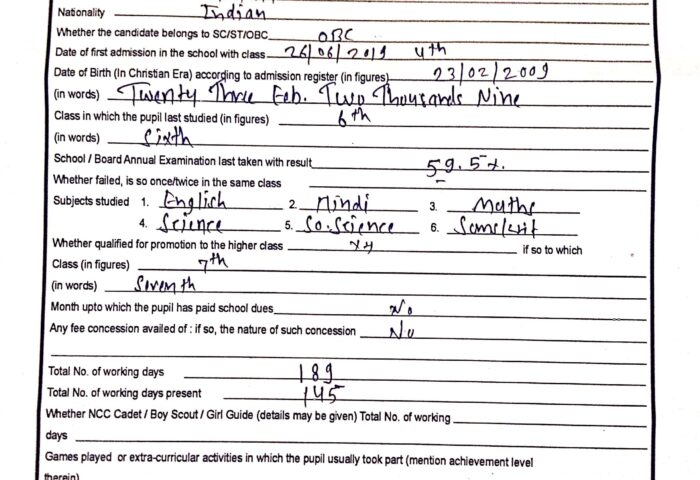 Nationality Indian
Whether the candidate belongs to SC/ST/OBC OBC
Date of first admission in the school with class 26/06/2019 4th
Date of Birth (In Christian Era) according to admission register (in figures) 23/02/2009
(in words) Twenty Three Feb. Two Thousands Nine
Class in which the pupil last studied (in figures) 6th
(in words) Sixth
School / Board Annual Examination last taken with result 59.5%
Whether failed, is so once/twice in the same class
Subjects studied 1. English 2. Hindi 3. Maths
4. Science 5. So.Science 6. Sanskrit
Whether qualified for promotion to the higher class if so to which
Class (in figures) 7th
(in words) Seventh
Month upto which the pupil has paid school dues No
Any fee concession availed of : if so, the nature of such concession No
Total No. of working days 189
Total No. of working days present 145
Whether NCC Cadet / Boy Scout / Girl Guide (details may be given) Total No. of working
days
Games played or extra-curricular activities in which the pupil usually took part (mention achievement level
therein)